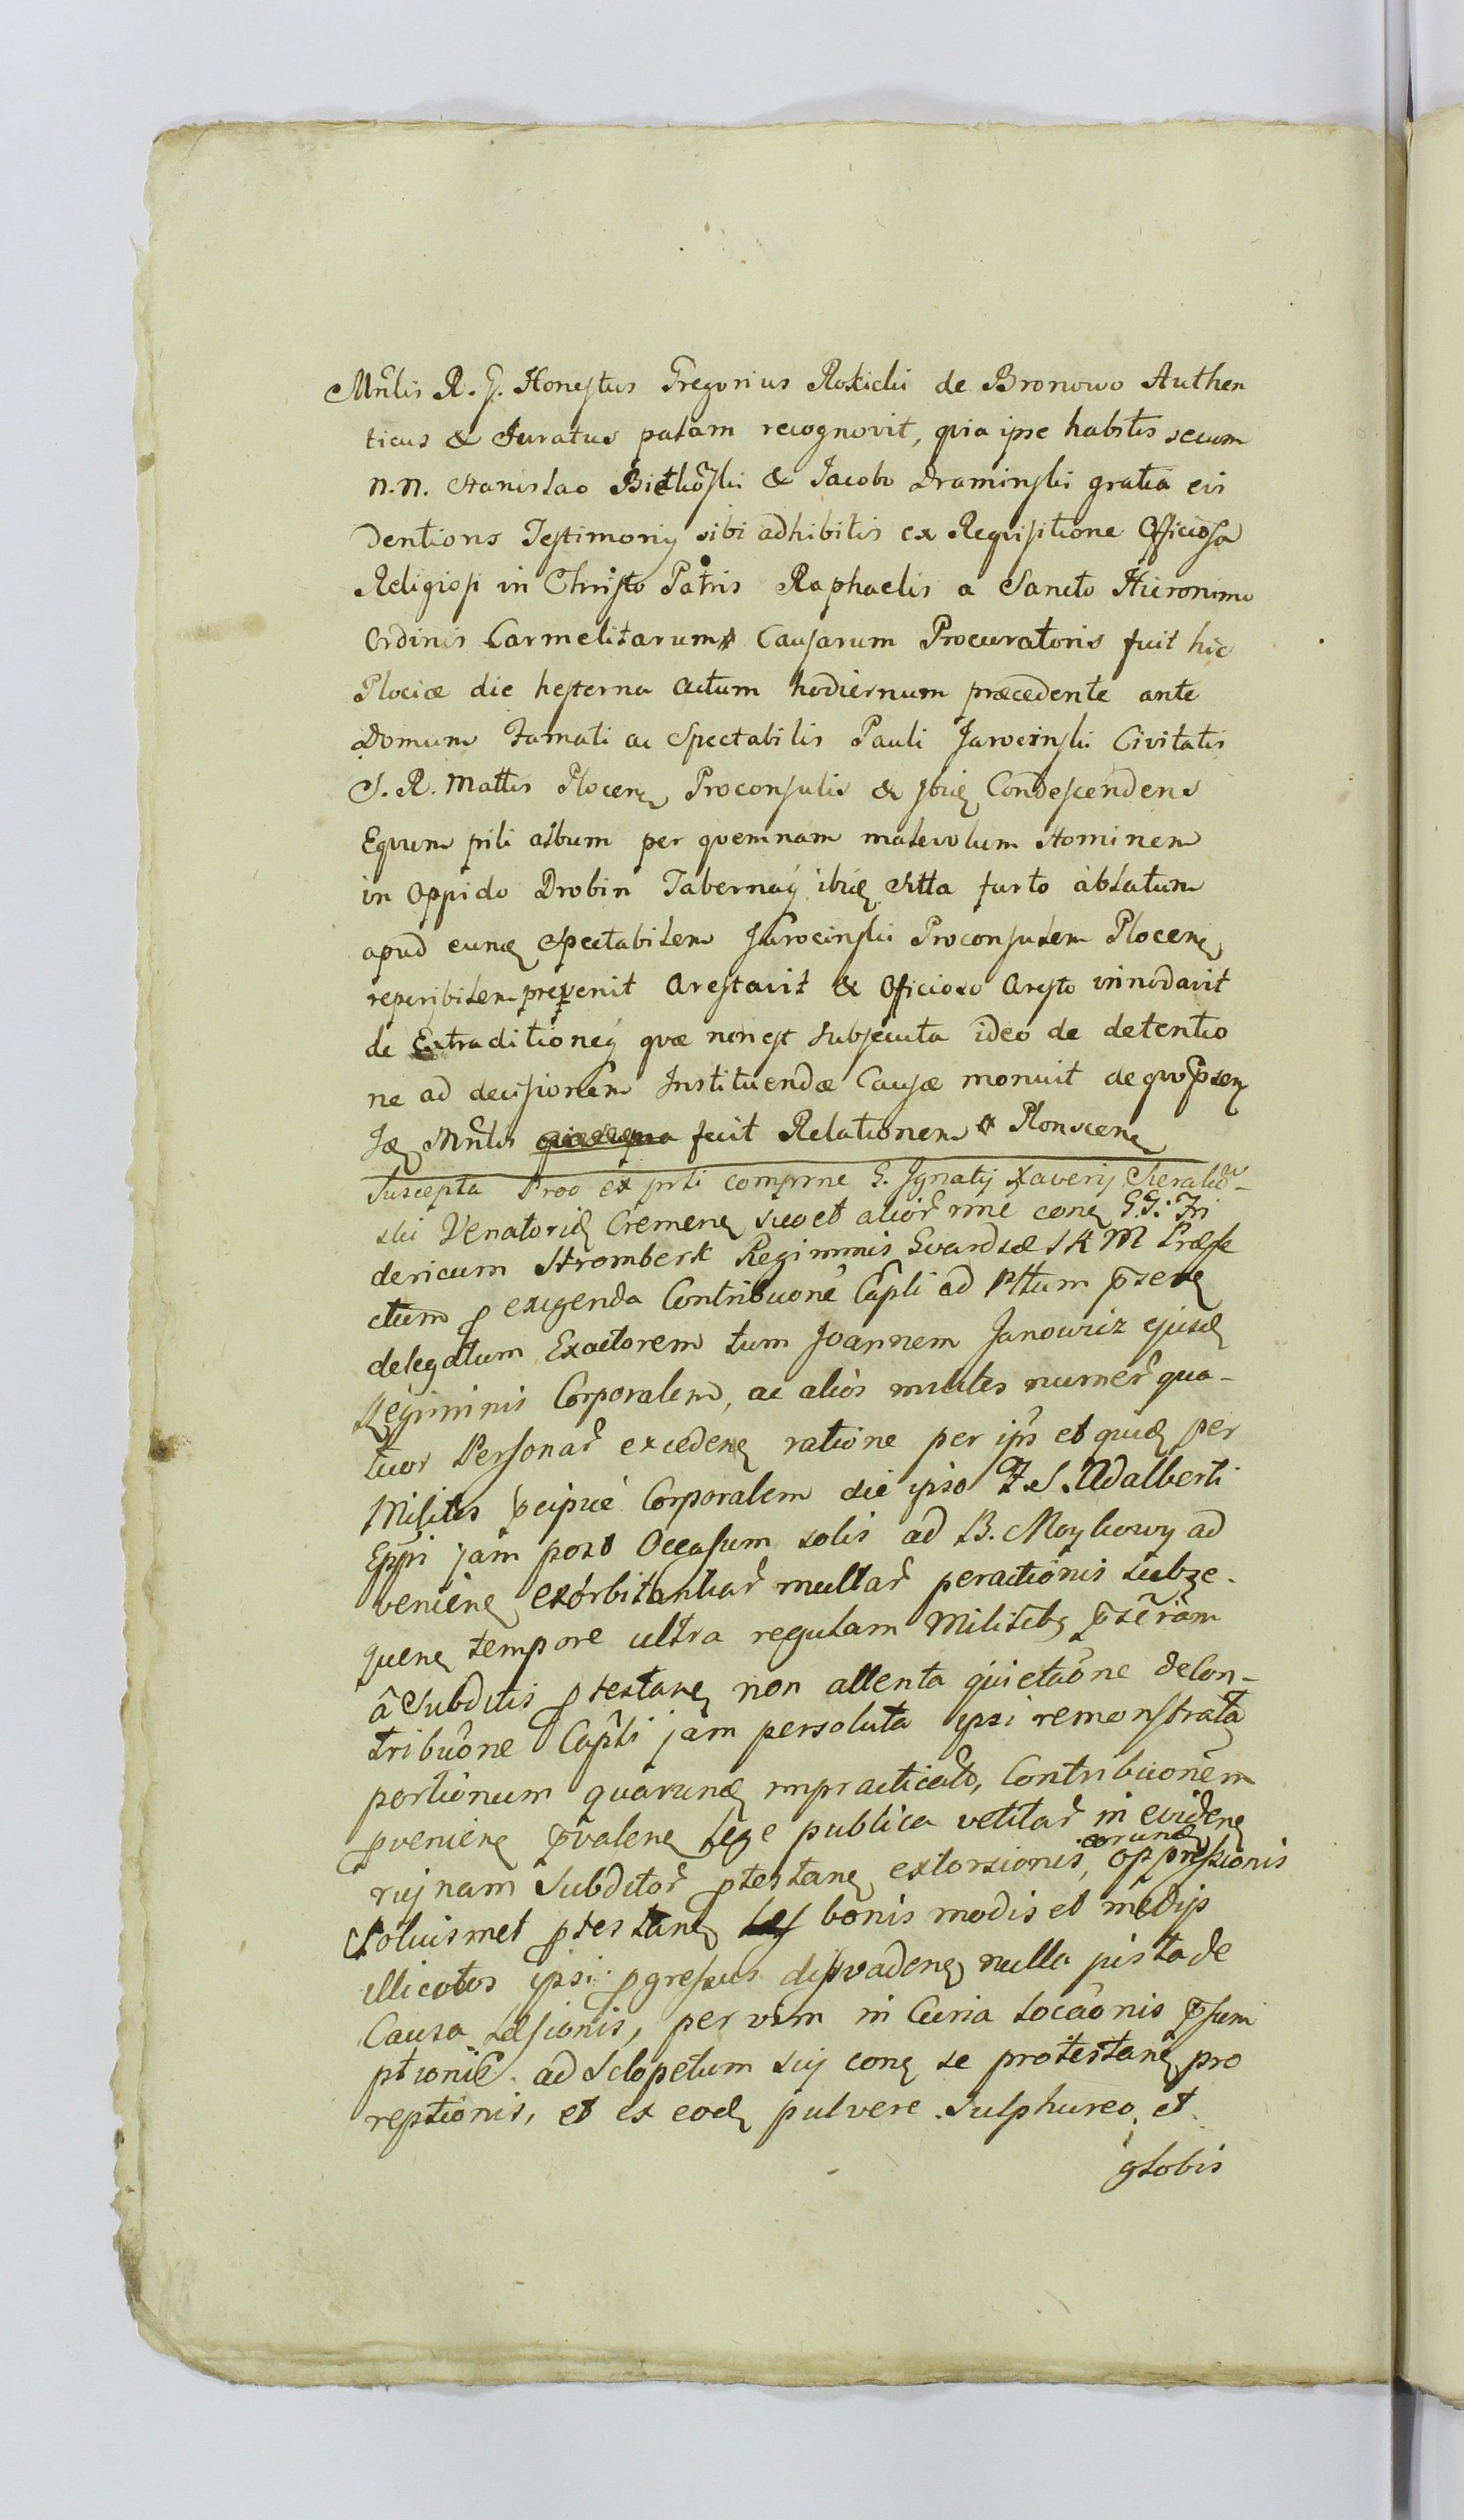 Mnlis R. G. Honestus Gregorius Rokicki de Bronowo Authen
ticus & Juratus palam recognovit, quia ipse habitis secum
N.N. Stanislao & Jacobo Draminski gratia evi
dentioris Testimonij sibi adhibitis ex Requisitione Officiosa
Religiosi in Christo Patris Raphaelis a Sancto Hieronimo
Ordinis Carmelitarum Causarum Procuratoris fuit hic
Plociæ die hesterna actum hodiernum præcedente ante
Domum Famati ac Spectabilis Pauli Jarocinski Civitatis
S. R. Mattis Plocen Proconsulis & ibid Condescendens
Equum pili album per quemnam malevolum Hominem
in Oppido Drobin Tabernaq ibid sitta furto ablatum
apud eund Spectabilem Jarocinski Proconsulem Plocen
reperibilem prevenit Arestavit & Officioso Aresto innodavit
de Extraditioneq quæ non est subsecuta ideo de detentio
ne ad decisionem Instituendæ Causæ monuit de quo psen
Id Mnlis fecit Relationem Plonscen
Suscepta Proo ex prti comprne G. Ignatij Xaverij Sierako
ski Venatorid Cremen suo et alior nne con G.G. Fri
dericum Stromberk Regiminis Gvardiæ S R M Præfe
ctum p exigenda Contribuone Capli ad Pltum psen
delegatum Exactorem tum Joannem Janowicz ejusd
Regiminis Corporalem, ac alios milites numer qua-
tuor Personar exceden ratione per ips et quid per
Milites pcipue Corporalem die ipso F. S. Adalberti
Eppi jam post Occasum solis ad B. Moykowy ad
venien exorbitantiar multar peractionis subse-
quen tempore ultra regulam Militib pscriam
â Subditis p testan non attenta quietaone de Con-
tribuone Capli jam persoluta ipsi remonstrata
portionum quarund impracticato, Contribuonem
pvenien pvalen lege publica vetitar in eviden
rujnam Subditor ptestan extorsionis, eorund oppressionis
Soluismet ptestan bonis modis et medijs
illicitos ipsi pgressus disvaden nulla justa de
Causa Læsionis, per vim in Curia locaonis psum
ptionis ad Sclopetum suj con se protestan pro
reptionis, et ex eod pulvere Sulphureo et
globis